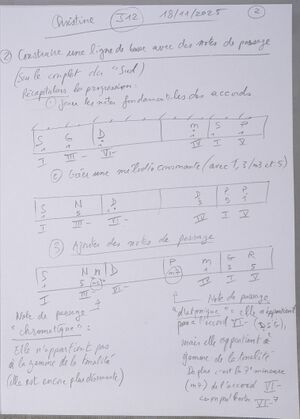 S12 18/11/2025 2
② Construire une ligne de basse avec des notes de passage
(sur le couplet du "Sud")
Récapitulons la progression:
① Jouer les notes fondamentales des accords
S G D m S P
I III- VI- IV I V
② Créer une mélodie consonante (avec 1, 3/m3 et 5)
S N D D P P
I III- VI- IV I V
③ Ajouter des notes de passage
S N n D P m G R
I III- VI- IV I V
Note de passage
"chromatique":
Elle n'appartient pas
à la gamme de la tonalité
(elle est encore plus dissonante)
Note de passage
"diatonique" = elle n'appartient
pas à l'accord VI-
mais elle appartient à
gamme de la tonalité
De plus c'est la 7e mineure
(m7) de l'accord VI-
VI-7